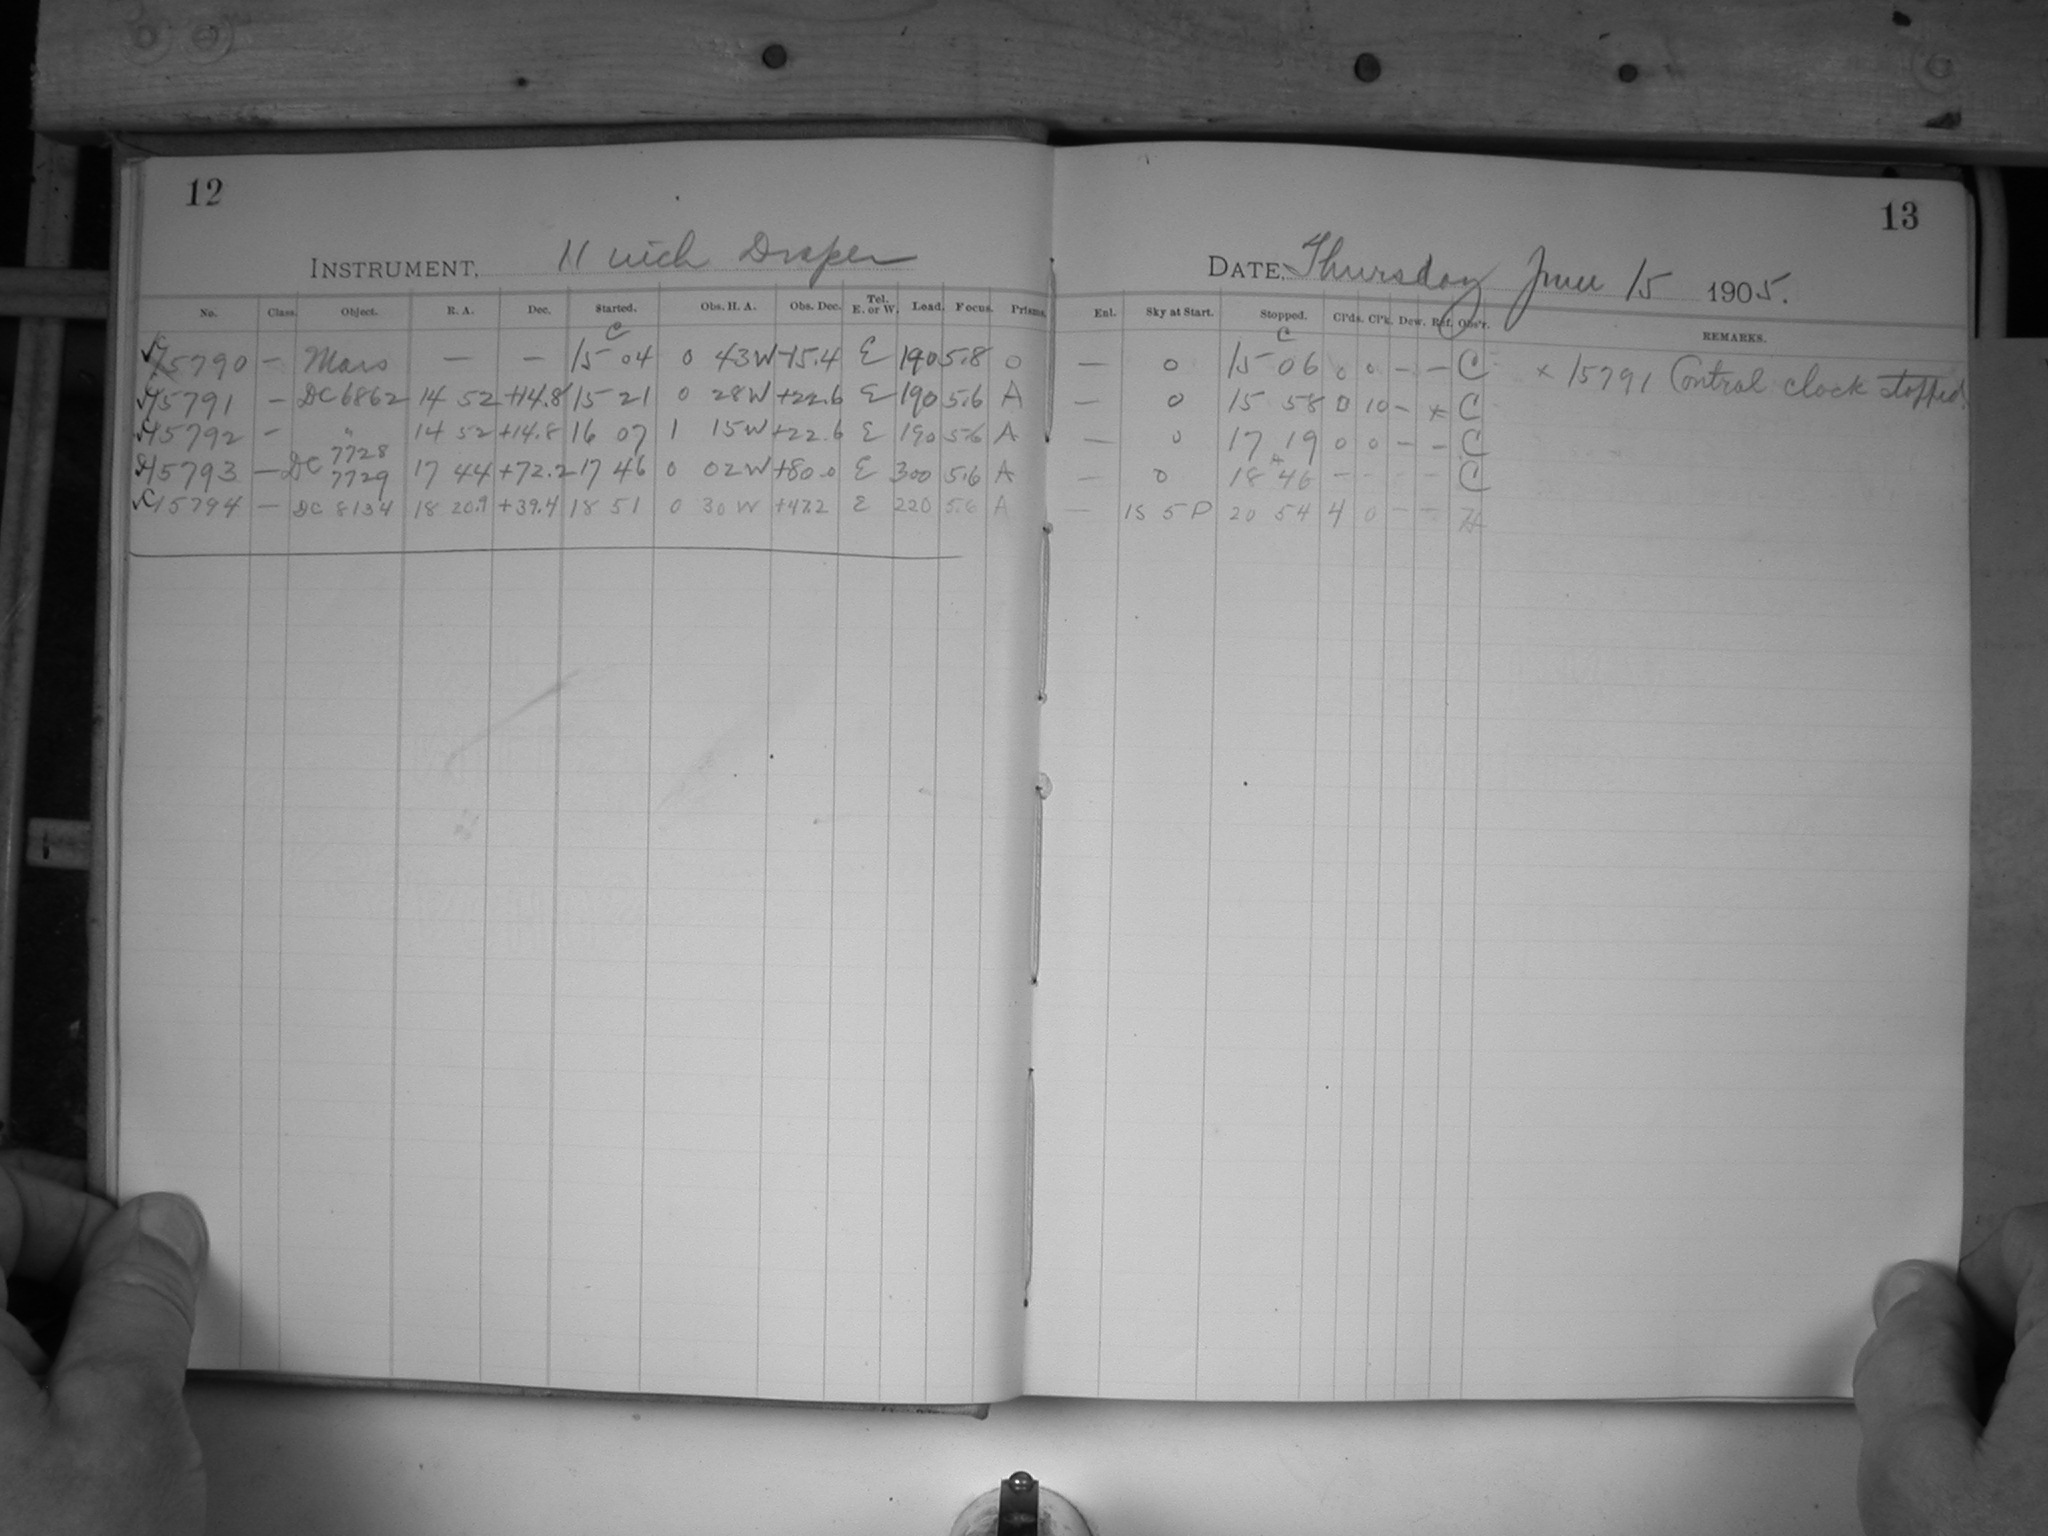 12
INSTRUMENT, 11 inch Draper
No. Class. Object. R. A. Dec. Started. Obs. H. A. Obs. Dec. Tel. E. or W. Load. Focus. Prisms.
C
15790 — Mars — — 15 04 0 43W -15.4 E 190 5.8 0
15791 — DC 6862 14 52 +14.8 15 21 0 28W +22.6 E 190 5.6 A
15792 — " 14 52 +14.8 16 07 1 15W +22.6 E 190 5.6 A
15793 — DC 7728 7729 17 44 +72.2 17 46 0 02W +80.0 E 300 5.6 A
15794 — DC 8134 18 20.9 +39.4 18 51 0 30W +47.2 E 220 5.6 A
13
DATE, Thursday June 15 1905.
Enl. Sky at Start. Stopped. Cl'ds. Cl'k. Dew. Ref. Obs'r. REMARKS.
C
— 0 15 06 0 0 — — C × 15791 Control clock stopped.
— 0 15 58 0 10 — × C
— 0 17 19 0 0 — — C
— 0 18 46 — - - - C
— 1S 5P 20 54 4 0 — — H